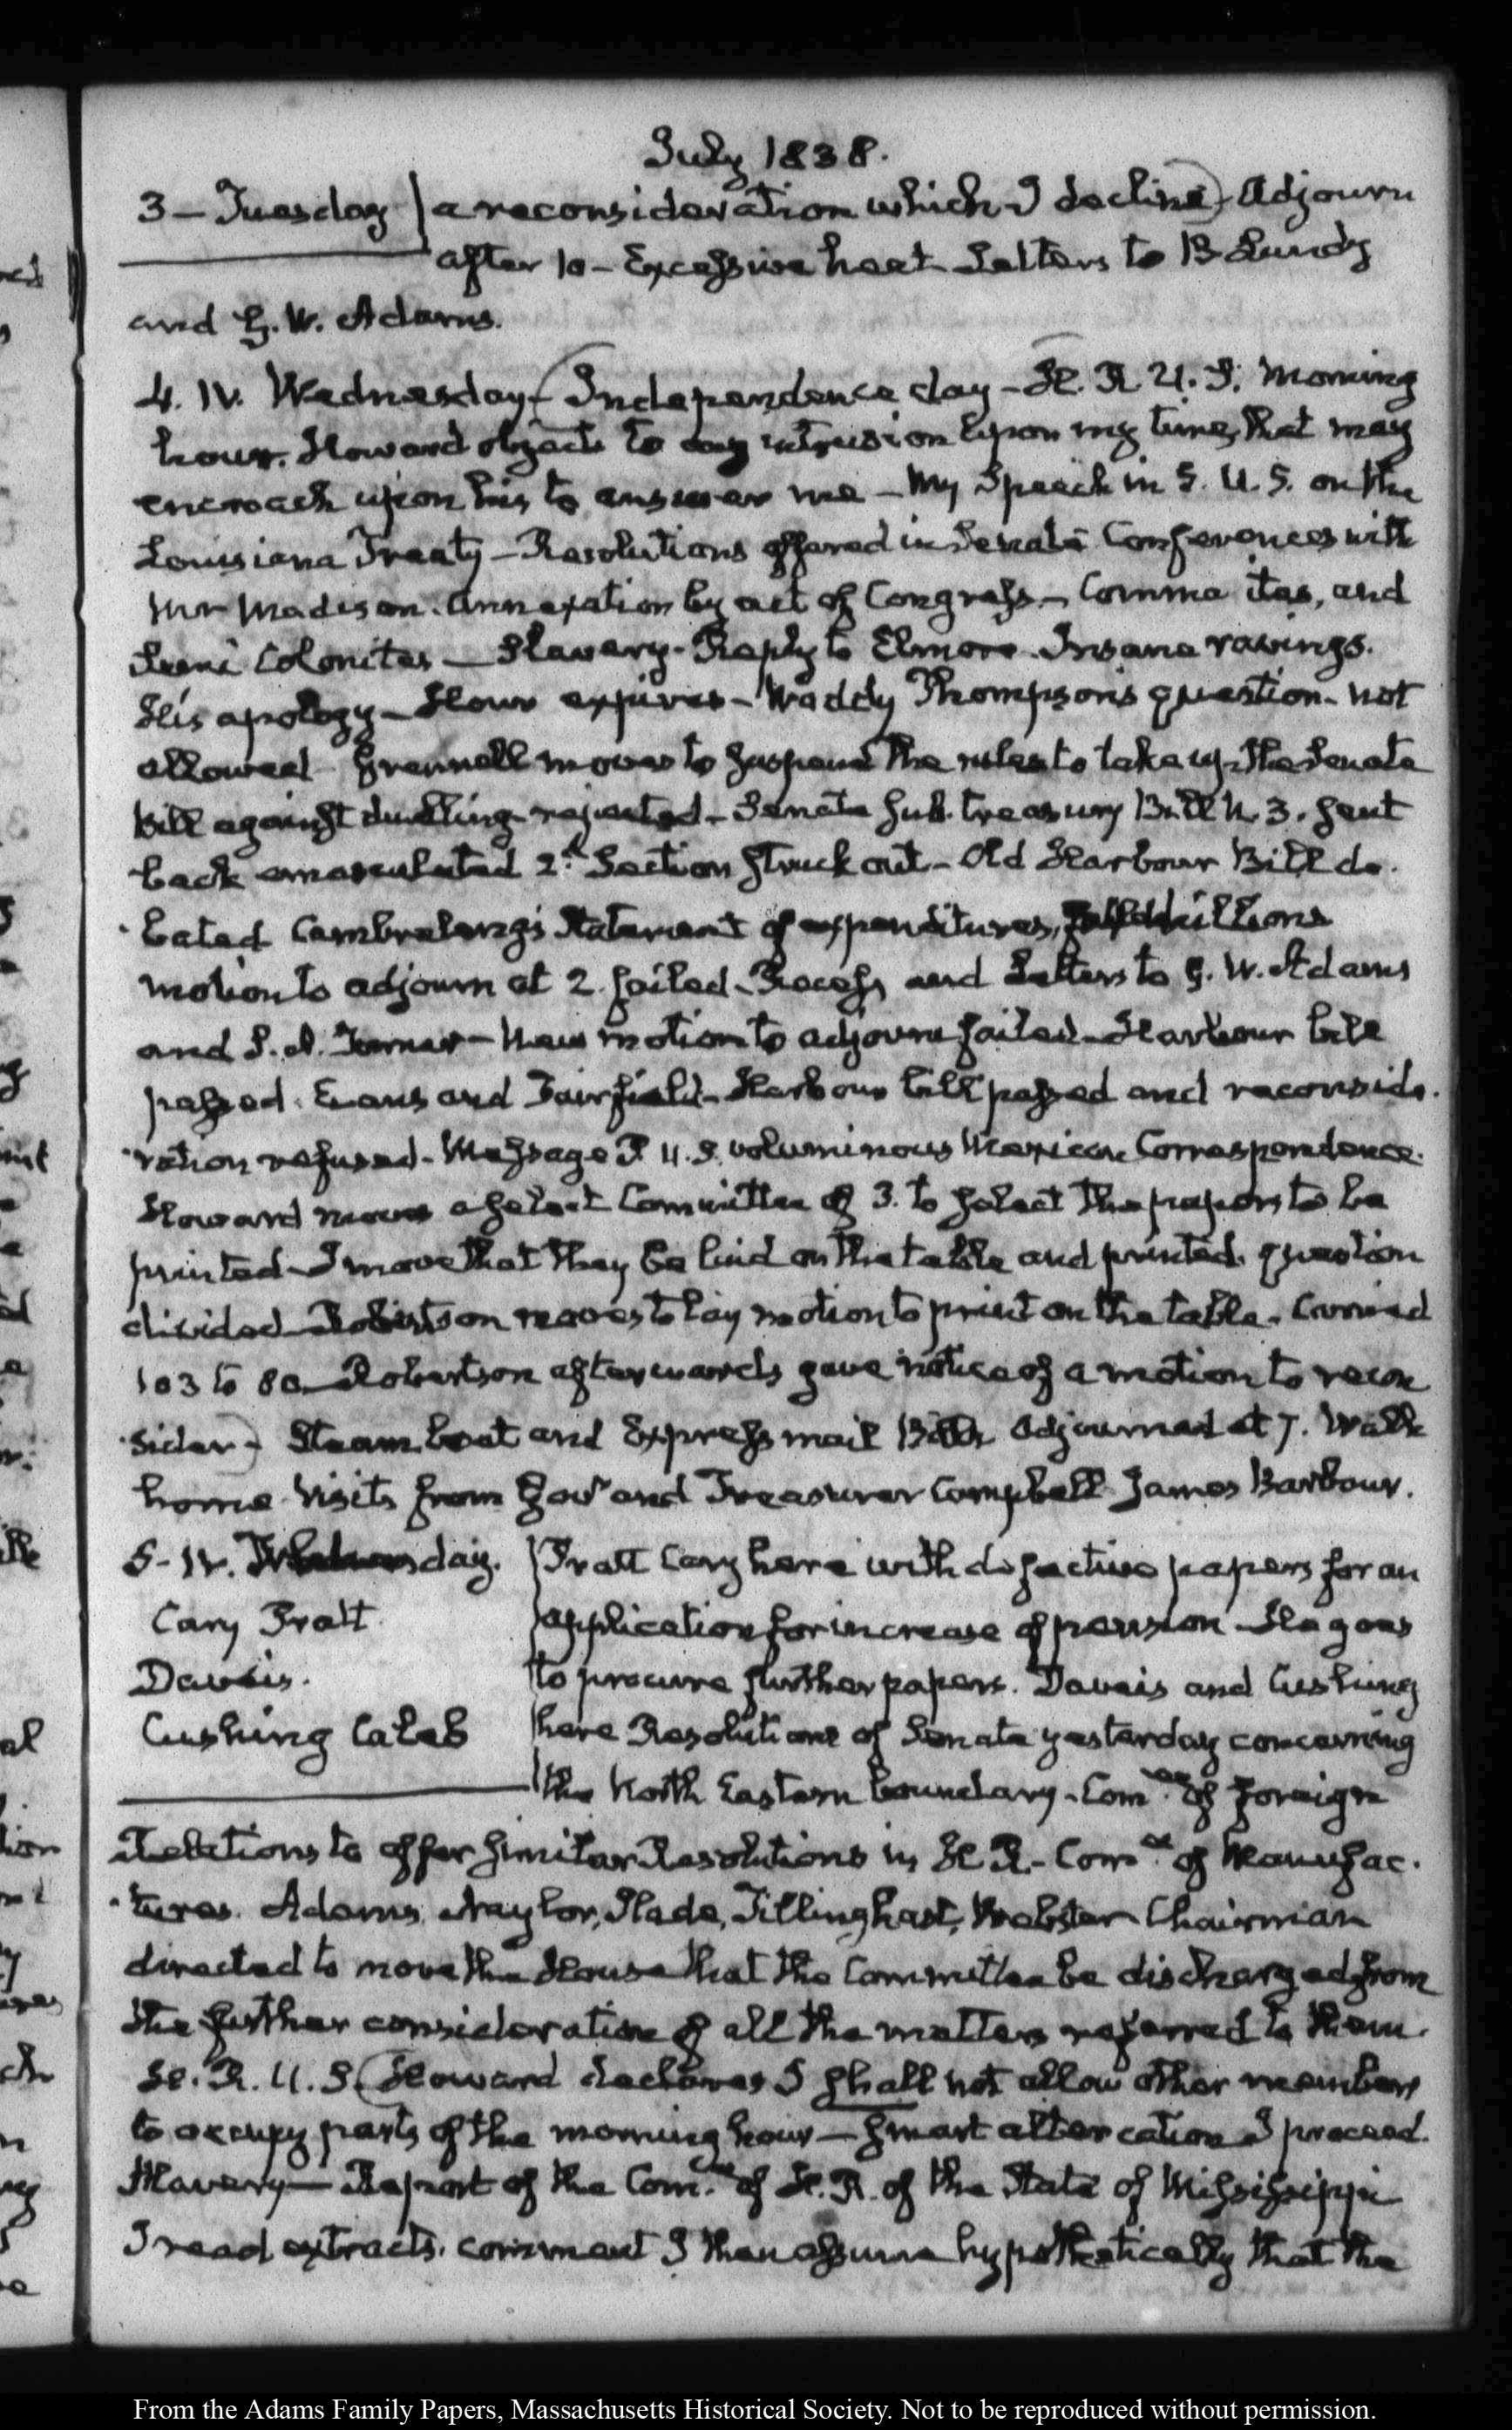 July 1838.
3 – Tuesday | a reconsideration which I decline) Adjourn
after 10 – Excessive heat Letters to B Lundy
and G. W. Adams.
4. IV. Wednesday – (Independence day – H. R. U. S. Morning
hour. Howard objects to any intrusion upon my time, that may
encroach upon his to answer me – My Speech in S. U. S. on the
Louisiana Treaty – Resolutions offered in Senate Conferences with
Mr Madison. Annexation by act of Congress – Comma ites, and
Semi Colonites – Slavery – Reply to Elmore. Insane ravings.
His apology – Hour expires – Waddy Thompson's question – not
allowed Grennell moves to suspend the rules to take up the Senate
bill against duelling rejected – Senate Sub. treasury Bill N. 3. sent
back emasculated 2d Section struck out – Old Harbour Bill de.
bated Cambreleng's statement of expenditures, millions
motion to adjourn at 2. failed – Recess and Letters to G. W. Adams
and – New motion to adjourn failed – Harbour bill
passed. Evans and Fairfield – Harbour bill passed and reconside.
ration refused – Message P U. S. voluminous Mexican Correspondence.
Howard moves a select Committee of 3. to select the papers to be
printed – I move that they be laid on the table and printed. question
divided – Robertson moves to lay motion to print on the table – Carried
103 to 80 – Robertson afterwards gave notice of a motion to recon
sider) – Steam boat and Express mail Bills Adjourned at 7. Walk
home Visits from Govr and Treasurer Campbell James Barbour.
5 – IV. Thursday. | Pratt Cary here with defective papers for an
Cary Pratt | application for increase of pension – He goes
Daveis. | to procure further papers. Daveis and Cushing
Cushing Caleb | here Resolutions of Senate yesterday concerning
the North Eastern boundary – Comee of foreign
Relations to offer similar Resolutions in H. R. – Comee of Manufac.
tures. Adams, Naylor, Slade, Tillinghast, Webster Chairman
directed to move the House that the Committee be discharged from
the further consideration of all the matters referred to them.
H. R. U. S. (Howard declares I shall not allow other members
to occupy parts of the morning hour – smart altercation I proceed.
Slavery – Report of the Comee of H. R. of the State of Mississippi
I read extracts. comment I then assume hypothetically that the
From the Adams Family Papers, Massachusetts Historical Society. Not to be reproduced without permission.